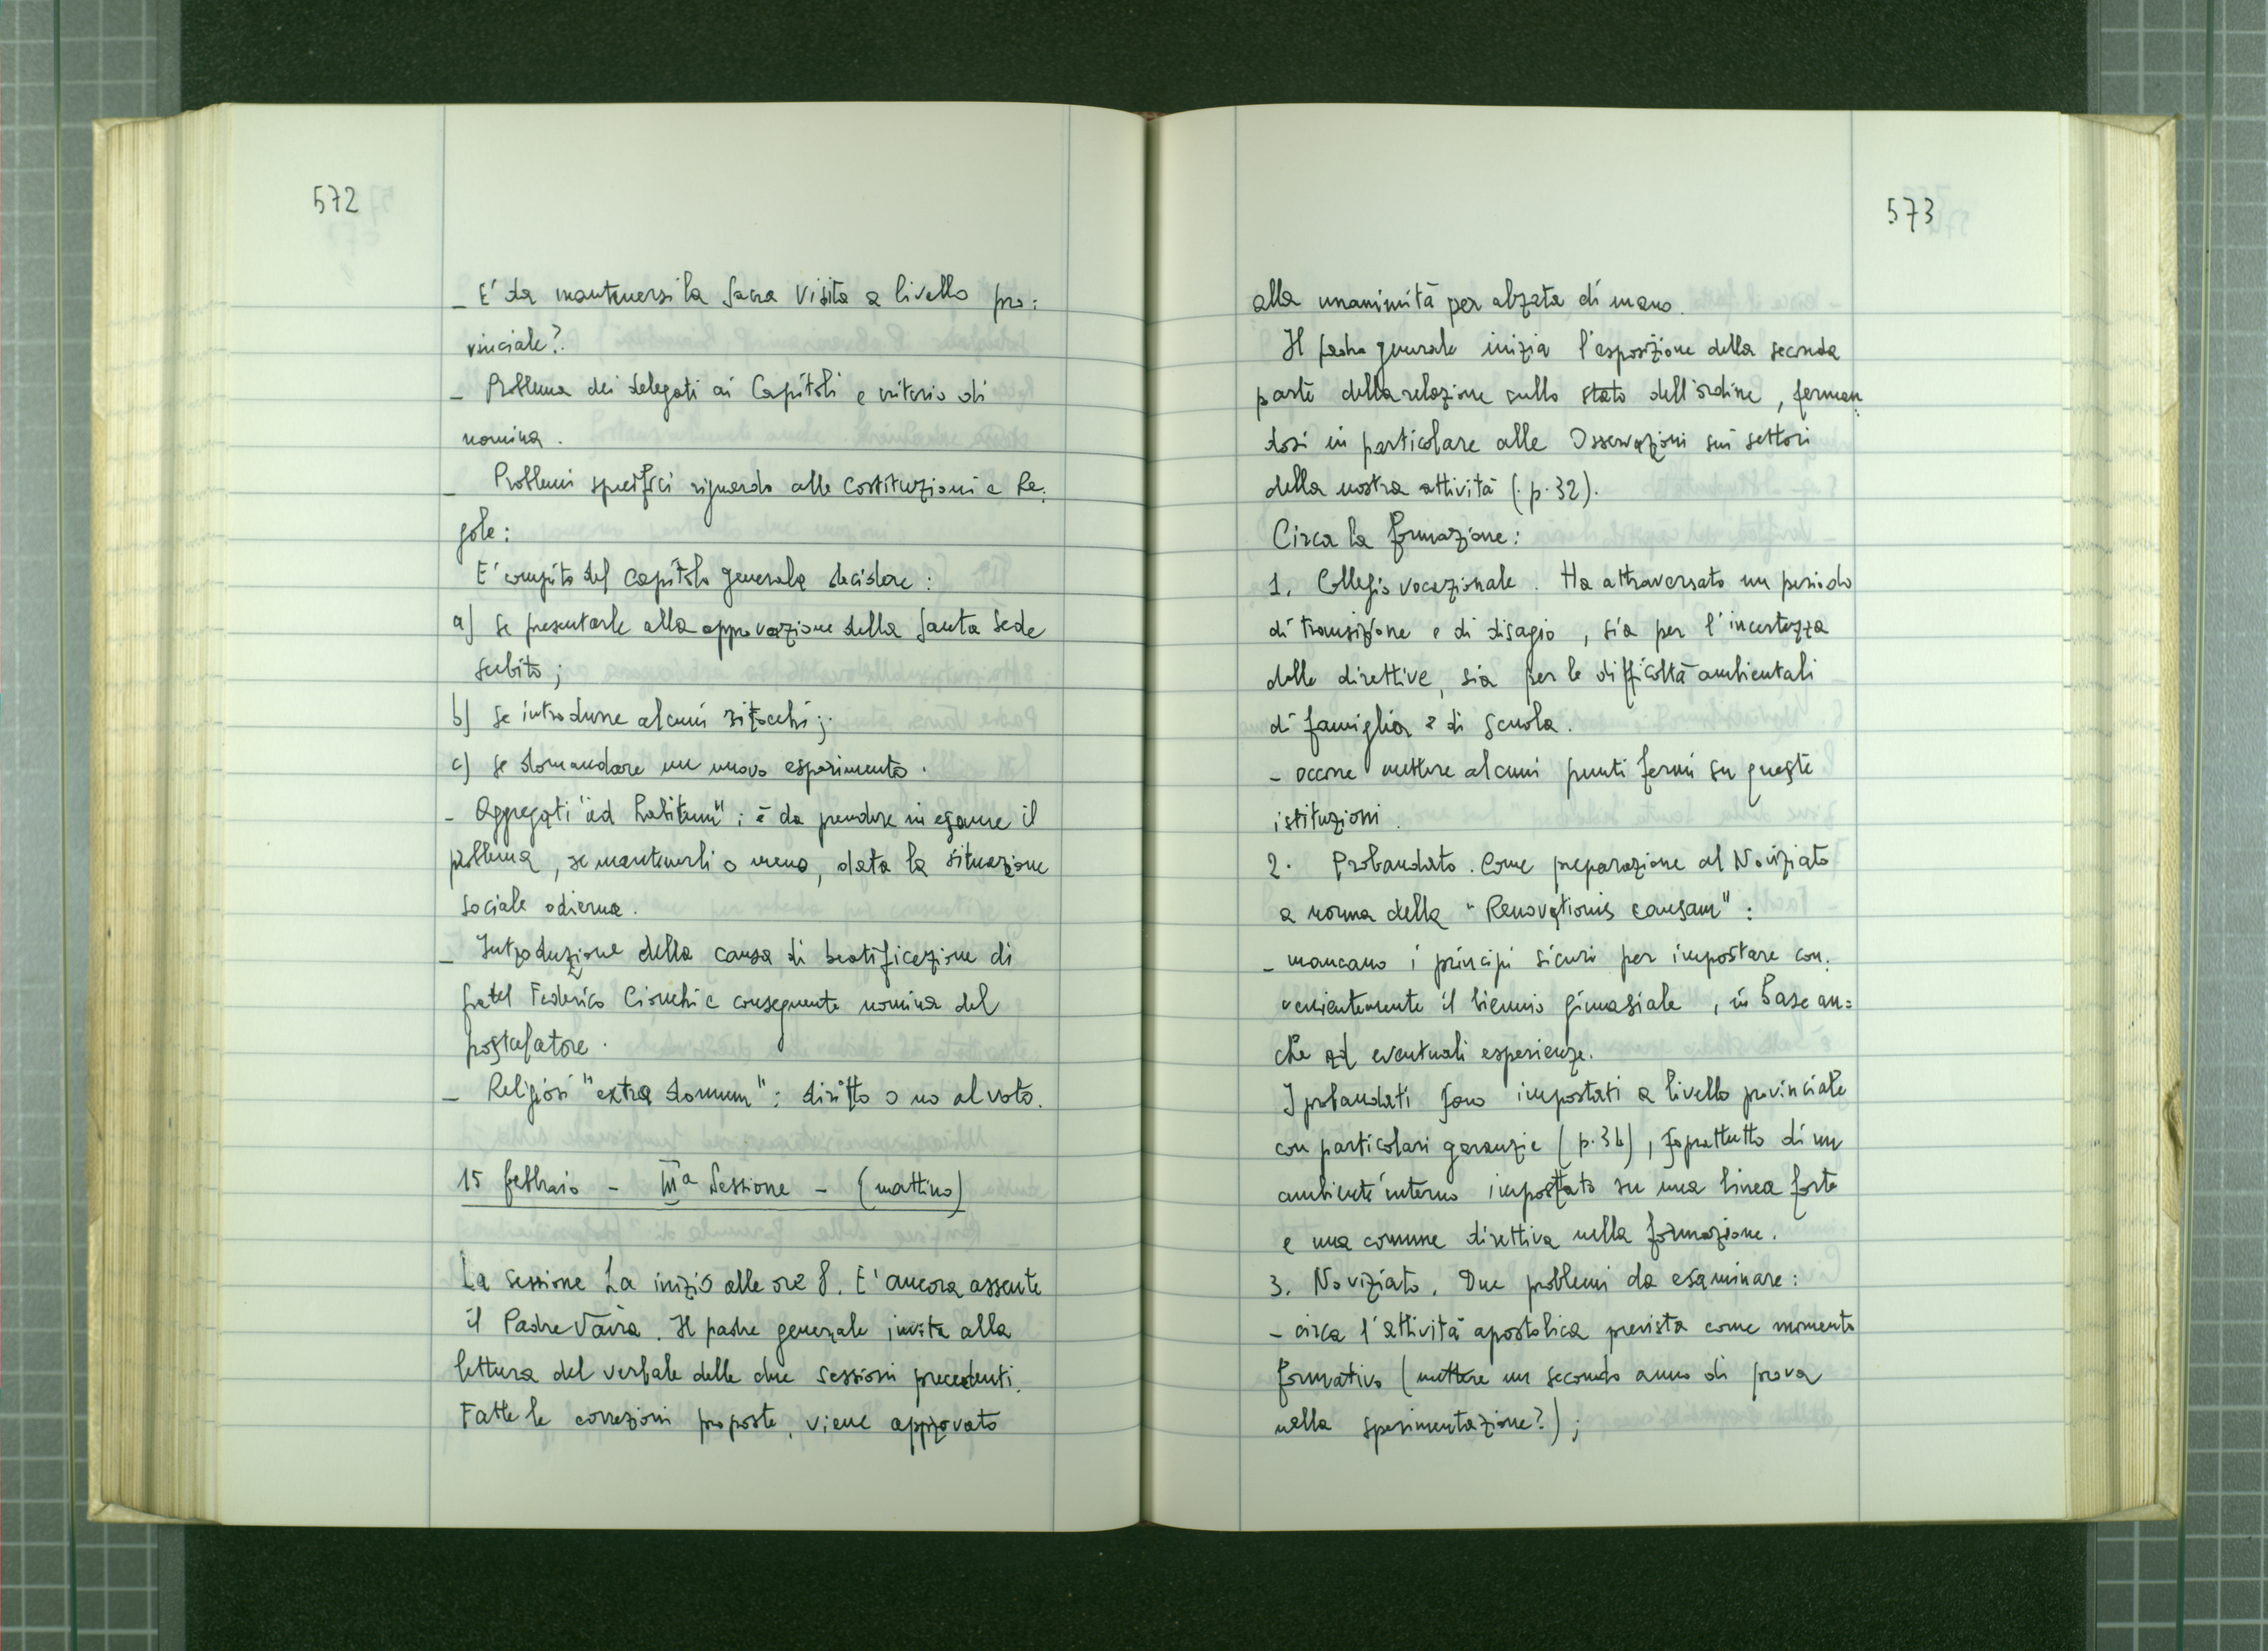 572
– E' da mantenersi la Sacra Visita a livello pro=
vinciale?
– Problema dei delegati ai Capitoli e criterio di
nomina.
– Problemi specifici riguardo alle Costituzioni e Re=
gole:
E' compito del Capitolo generale decidere:
a) se presentarle alla approvazione della Santa Sede
subito;
b) se introdurre alcuni ritocchi;
c) se domandare un nuovo esperimento.
– Aggregati "ad habitum"; è da prendere in esame il
problema, se mantenerli o meno, data la situazione
sociale odierna.
– Introduzione della causa di beatificazione di
fratel Federico Cionchi e conseguente nomina del
postulatore.
– Religiosi "extra domum": diritto o no al voto.
15 febbraio – IIIª Sessione – (mattino)
La sessione ha inizio alle ore 8. E' ancora assente
il Padre Vaira. Il padre generale invita alla
lettura del verbale delle due sessioni precedenti.
Fatte le correzioni proposte, viene approvato
573
alla unanimità per alzata di mano.
Il padre generale inizia l'esposizione della seconda
parte della relazione sullo stato dell'ordine, ferman=
dosi in particolare alle Osservazioni sui settori
della nostra attività (p. 32).
Circa la formazione:
1. Collegio vocazionale. Ha attraversato un periodo
di transizione e di disagio, sia per l'incertezza
delle direttive, sia per le difficoltà ambientali
di famiglia e di scuola.
– occorre mettere alcuni punti fermi su queste
istituzioni.
2. Probandato. Come preparazione al Noviziato
a norma della "Renovationis causam":
– mancano i principi sicuri per impostare con=
venientemente il biennio ginnasiale, in base an=
che ad eventuali esperienze.
I probandati sono impostati a livello provinciale
con particolari garanzie (p. 34), soprattutto di un
ambiente interno impostato su una linea forte
e una comune direttiva nella formazione.
3. Noviziato. Due problemi da esaminare:
– circa l'attività apostolica prevista come momento
formativo (mettere un secondo anno di prova
nella sperimentazione?);